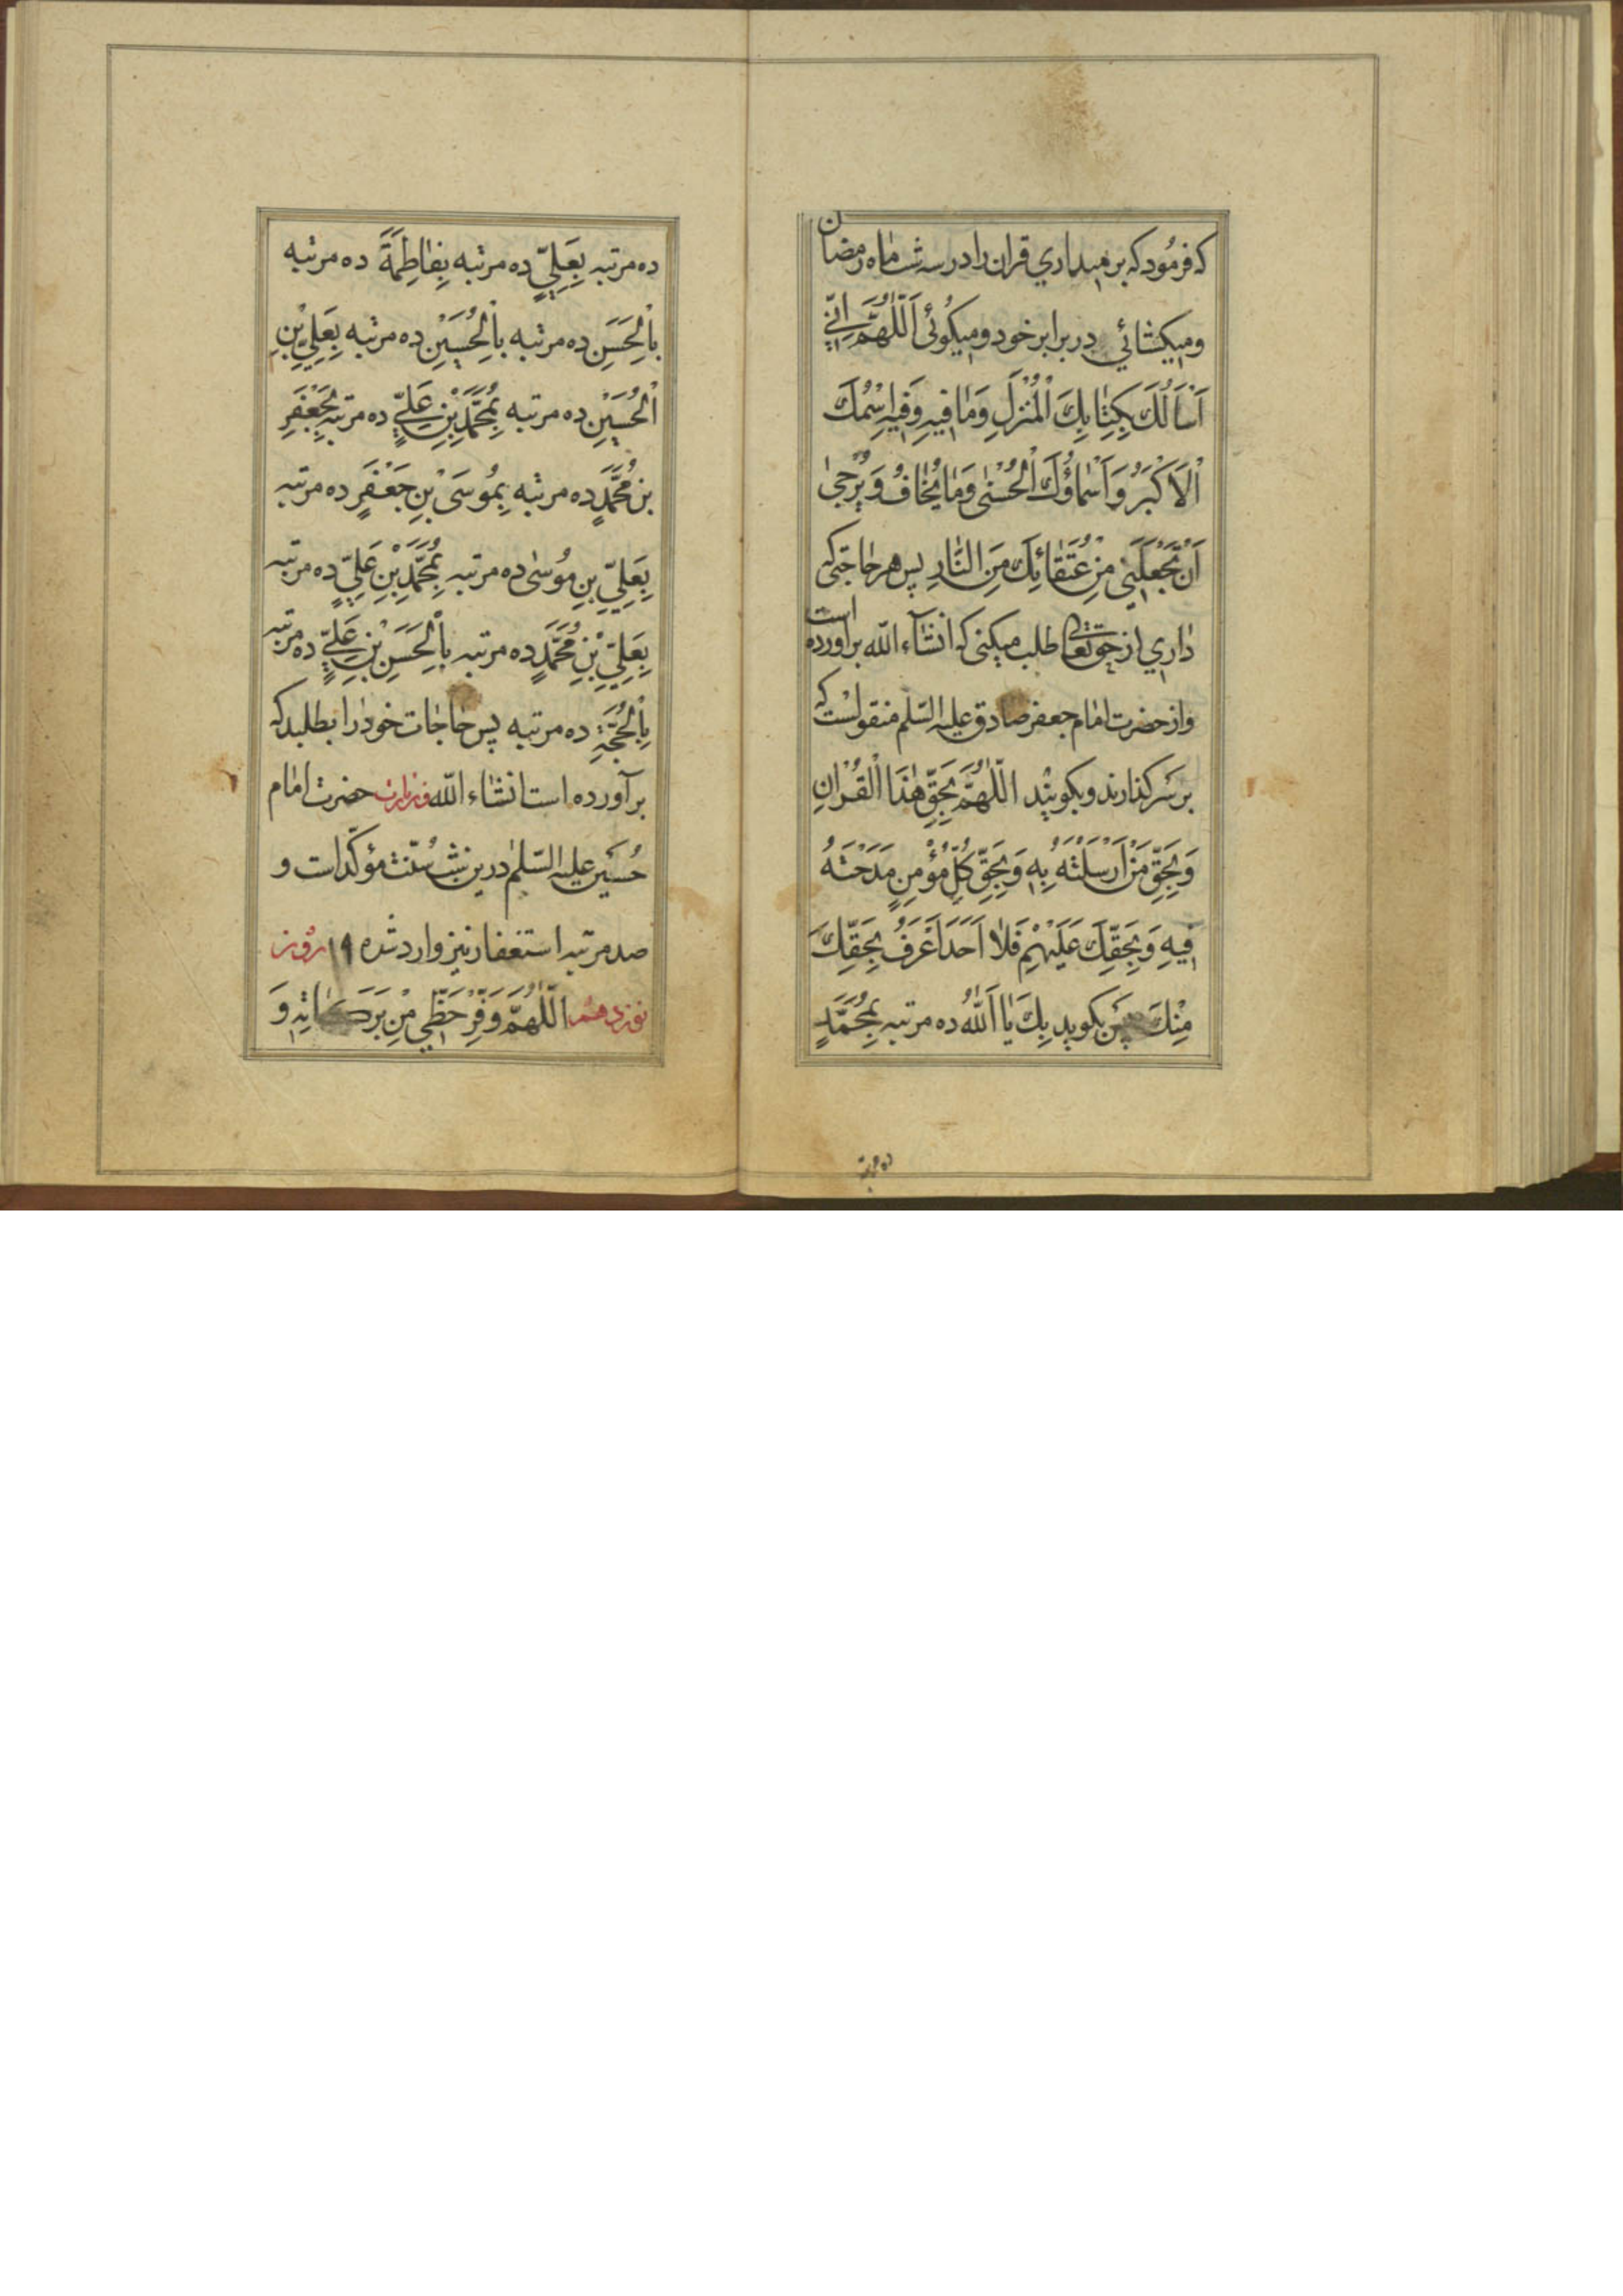 که فرمُود که بر میداری قران را در سه شب ماه رمضان
و میکشائی در برابر خود و میکوئی اَللّٰهُمَّ اِنّی
اَسْاَلُكَ بِكِتٰابِكَ الْمُنْزَلِ وَمٰا فیهِ وَفیهِ اسْمُكَ
الْاَكْبَرُ وَاَسْمٰاؤُكَ الْحُسْنٰی وَمٰا یُخٰافُ وَ یُرْجیٰ
اَنْ تَجْعَلَنی مِنْ عُتَقٰائِكَ مِنَ النّٰارِ پس هر حاجتی که
داری از حق تعالی طلب میکنی که انشآء الله براورده است
و از حضرت امام جعفر صادق علیه السّلم منقولست که
بر سَر کذارند و بکویند اللّٰهُمَّ بِحَقِّ هٰذَا الْقُرْانِ
وَ بِحَقِّ مَنْ اَرْسَلْتَهُ بِهِ وَ بِحَقِّ كُلِّ مُؤْمِنٍ مَدَحْتَهُ
فیهِ وَ بِحَقِّكَ عَلَیْهِمْ فَلٰا اَحَدَ اَعْرَفُ بِحَقِّكَ
مِنْكَ پس بکوید بِكَ یٰا اَللّٰهُ ده مرتبه بِمُحَمَّدٍ
ده مرتبه
ده مرتبه بِعَلِیٍّ ده مرتبه بِفٰاطِمَةَ ده مرتبه
بِالْحَسَنِ ده مرتبه بِالْحُسَیْنِ ده مرتبه بِعَلِیِّ بْنِ
الْحُسَیْنِ ده مرتبه بِمُحَمَّدِ بْنِ عَلِیٍّ ده مرتبه بِجَعْفَرِ
بْنِ مُحَمَّدٍ ده مرتبه بِمُوسَی بْنِ جَعْفَرٍ ده مرتبه
بِعَلِیِّ بْنِ مُوسٰی ده مرتبه بِمُحَمَّدِ بْنِ عَلِیٍّ ده مرتبه
بِعَلِیِّ بْنِ مُحَمَّدٍ ده مرتبه بِالْحَسَنِ بْنِ عَلِیٍّ ده مرتبه
بِالْحُجَّةِ ده مرتبه پس حاجات خود را بطلبد که
برآورده است انشاء الله و زیارت حضرت امام
حُسَین علیه السّلم درین شب سُنّت مؤکّد است و
صد مرتبه استغفار نیز وارد شده ۱۹ روز
نوزدهم اللّٰهُمَّ وَفِّرْ حَظّی مِنْ بَرَكٰاتِهِ وَ